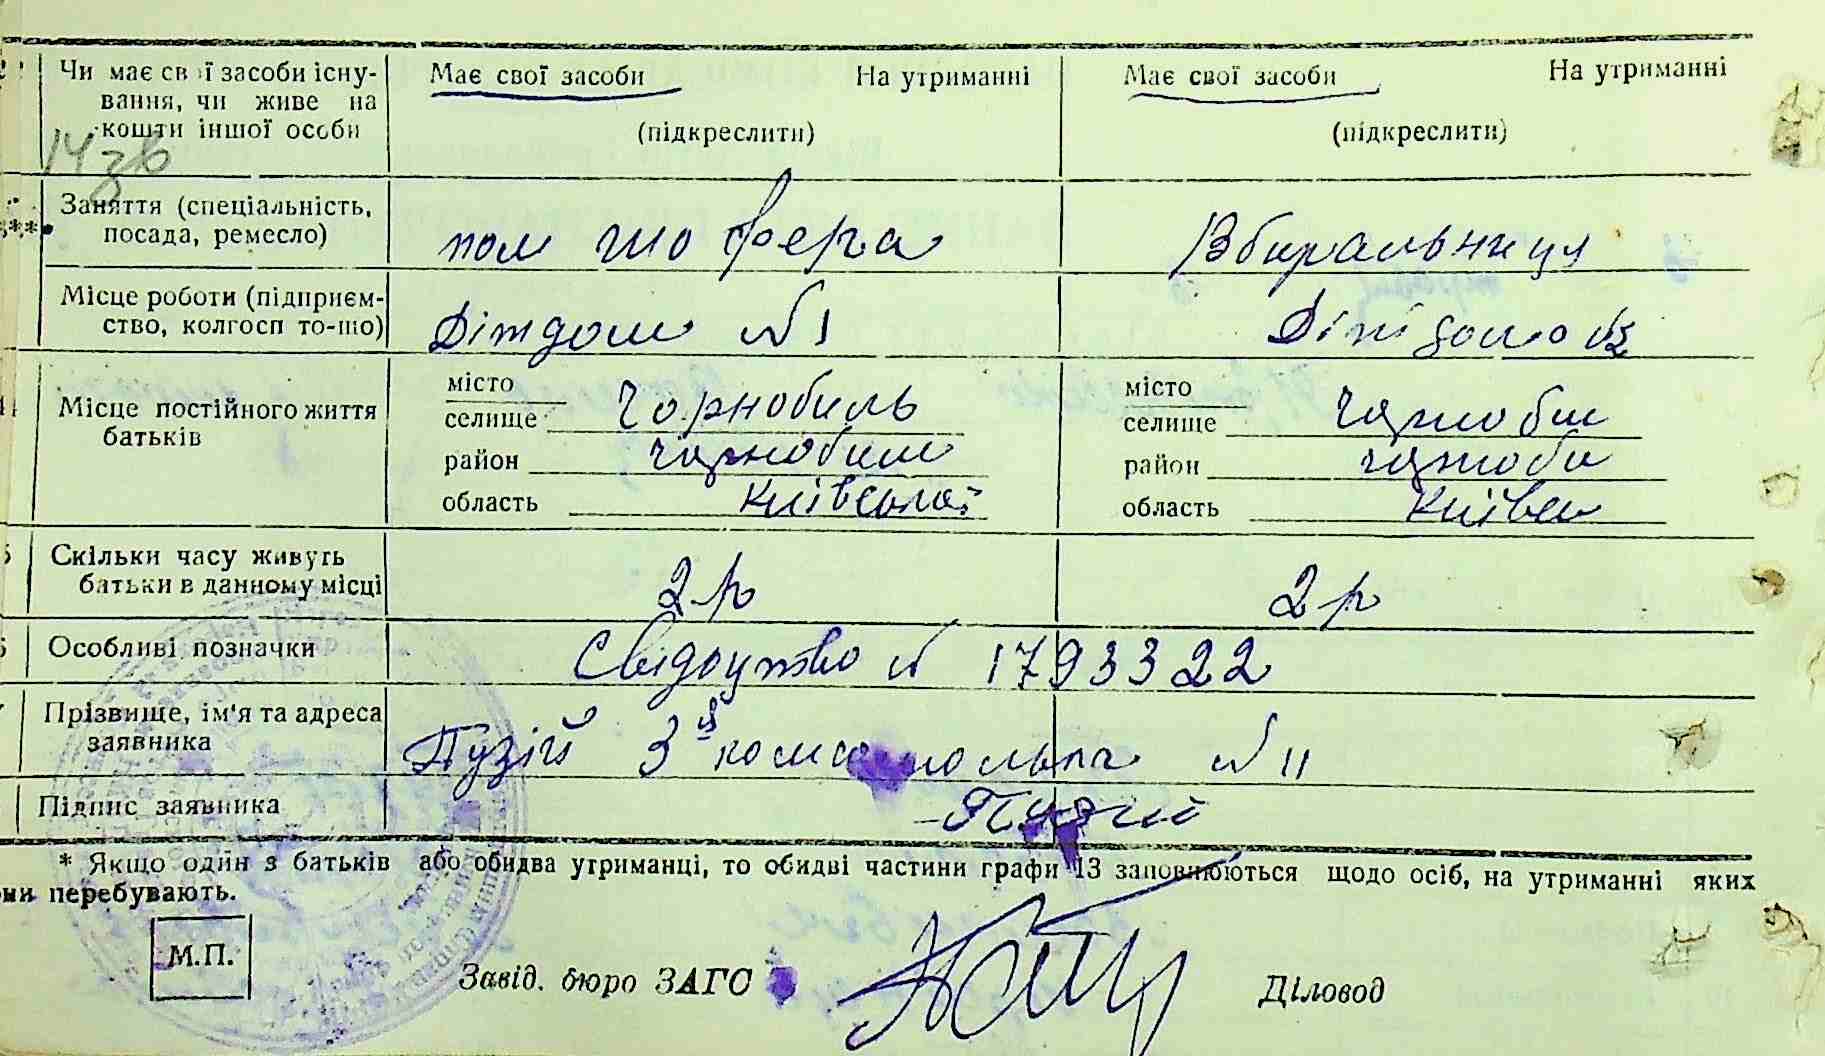 Чи має свої засоби існу- Має свої засоби На утриманні Має свої засоби На утриманні
вання, чи живе на
кошти іншої особи (підкреслити) (підкреслити)
14 зв
Заняття (спеціальність,
посада, ремесло) пом шофера Вбиральниця
Місце роботи (підприєм-
ство, колгосп то-що) Дітдом №1 Дітдом
місто місто
Місце постійного життя селище Чорнобиль селище Чорноби
батьків район район
область Київської область Київськ
Скільки часу живуть
батьки в данному місці 2 р 2 р
Особливі позначки Свідоцтво № 1793322
Прізвище, ім'я та адреса
заявника Пузій 3 № 11
Підпис заявника Пузій
* Якщо один з батьків або обидва утриманці, то обидві частини графи 13 заповнюються щодо осіб, на утриманні яких
перебувають.
М.П.
Завід. бюро ЗАГС Діловод